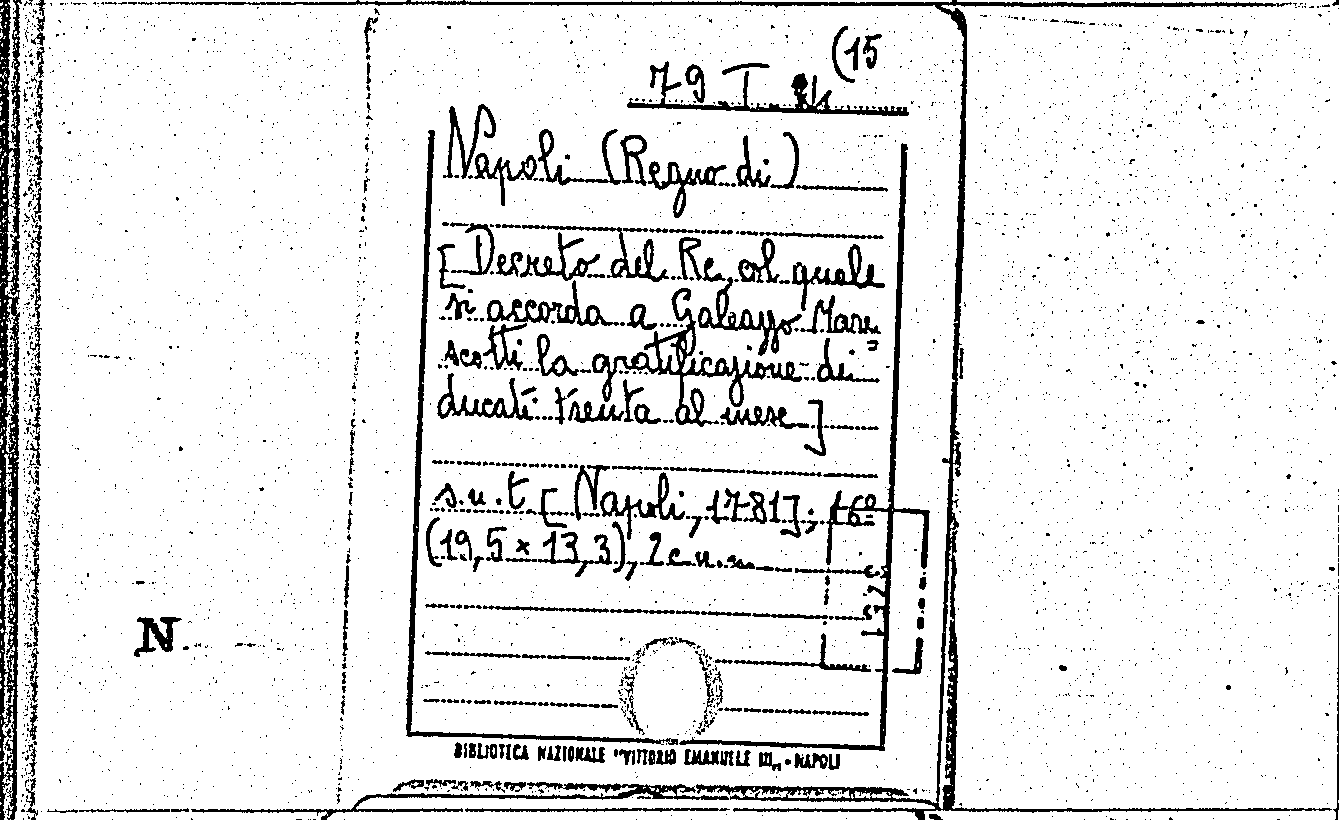 (15
79 T
Napoli (Regno di)
[Decreto del Re, col quale
si accorda a Galeazzo Mare=
scotti la gratificazione di
ducati trenta al mese]
s.n.t. [Napoli, 1781]; 16º
(19,5 x 13,3), 2 c.n.n.
N.
BIBLIOTECA NAZIONALE "VITTORIO EMANUELE III" - NAPOLI